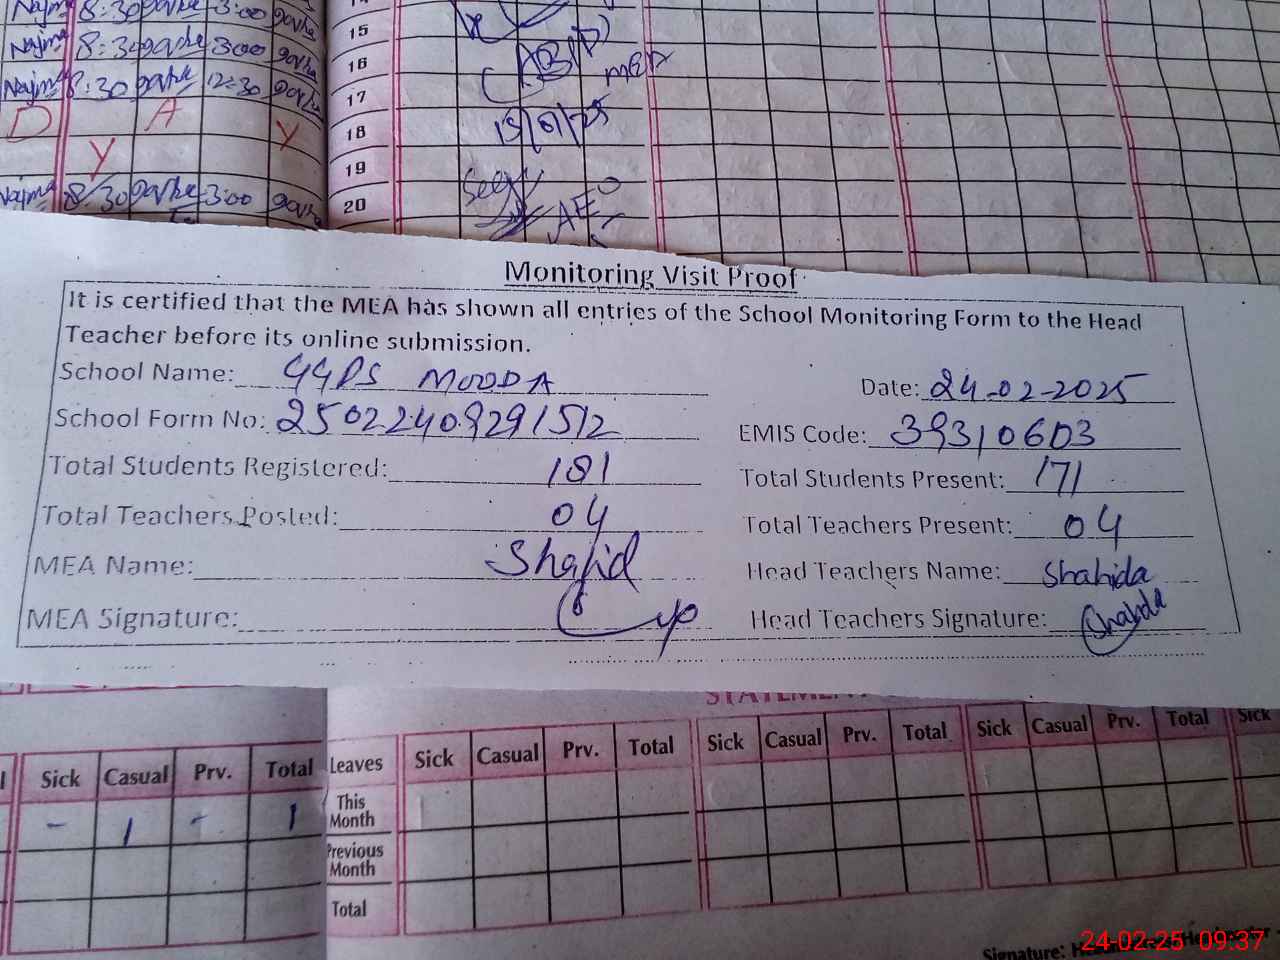 Najma 8:30 3:00
14
Najma 8:30 3:00
15
Najma 8:30 12:30
16
MEA
17
D A Y
18
Y
19
Najma 8:30 3:00
20
AEO
Monitoring Visit Proof
It is certified that the MEA has shown all entries of the School Monitoring Form to the Head
Teacher before its online submission.
School Name: GGPS MOODA Date: 24-02-2025
School Form No: 25022409291512 EMIS Code: 39310603
Total Students Registered: 181 Total Students Present: 171
Total Teachers Posted: 04 Total Teachers Present: 04
MEA Name: Shahid Head Teachers Name: Shahida
MEA Signature: Head Teachers Signature: Shahida
Sick Casual Prv. Total Leaves Sick Casual Prv. Total Sick Casual Prv. Total Sick Casual Prv. Total Sick
- 1 - 1 This Month
Previous Month
Total
Signature:
24-02-25 09:37